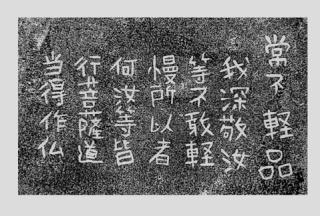 常不軽品
我深敬汝
等不敢軽
慢所以者
何汝等皆
行菩薩道
当得作仏